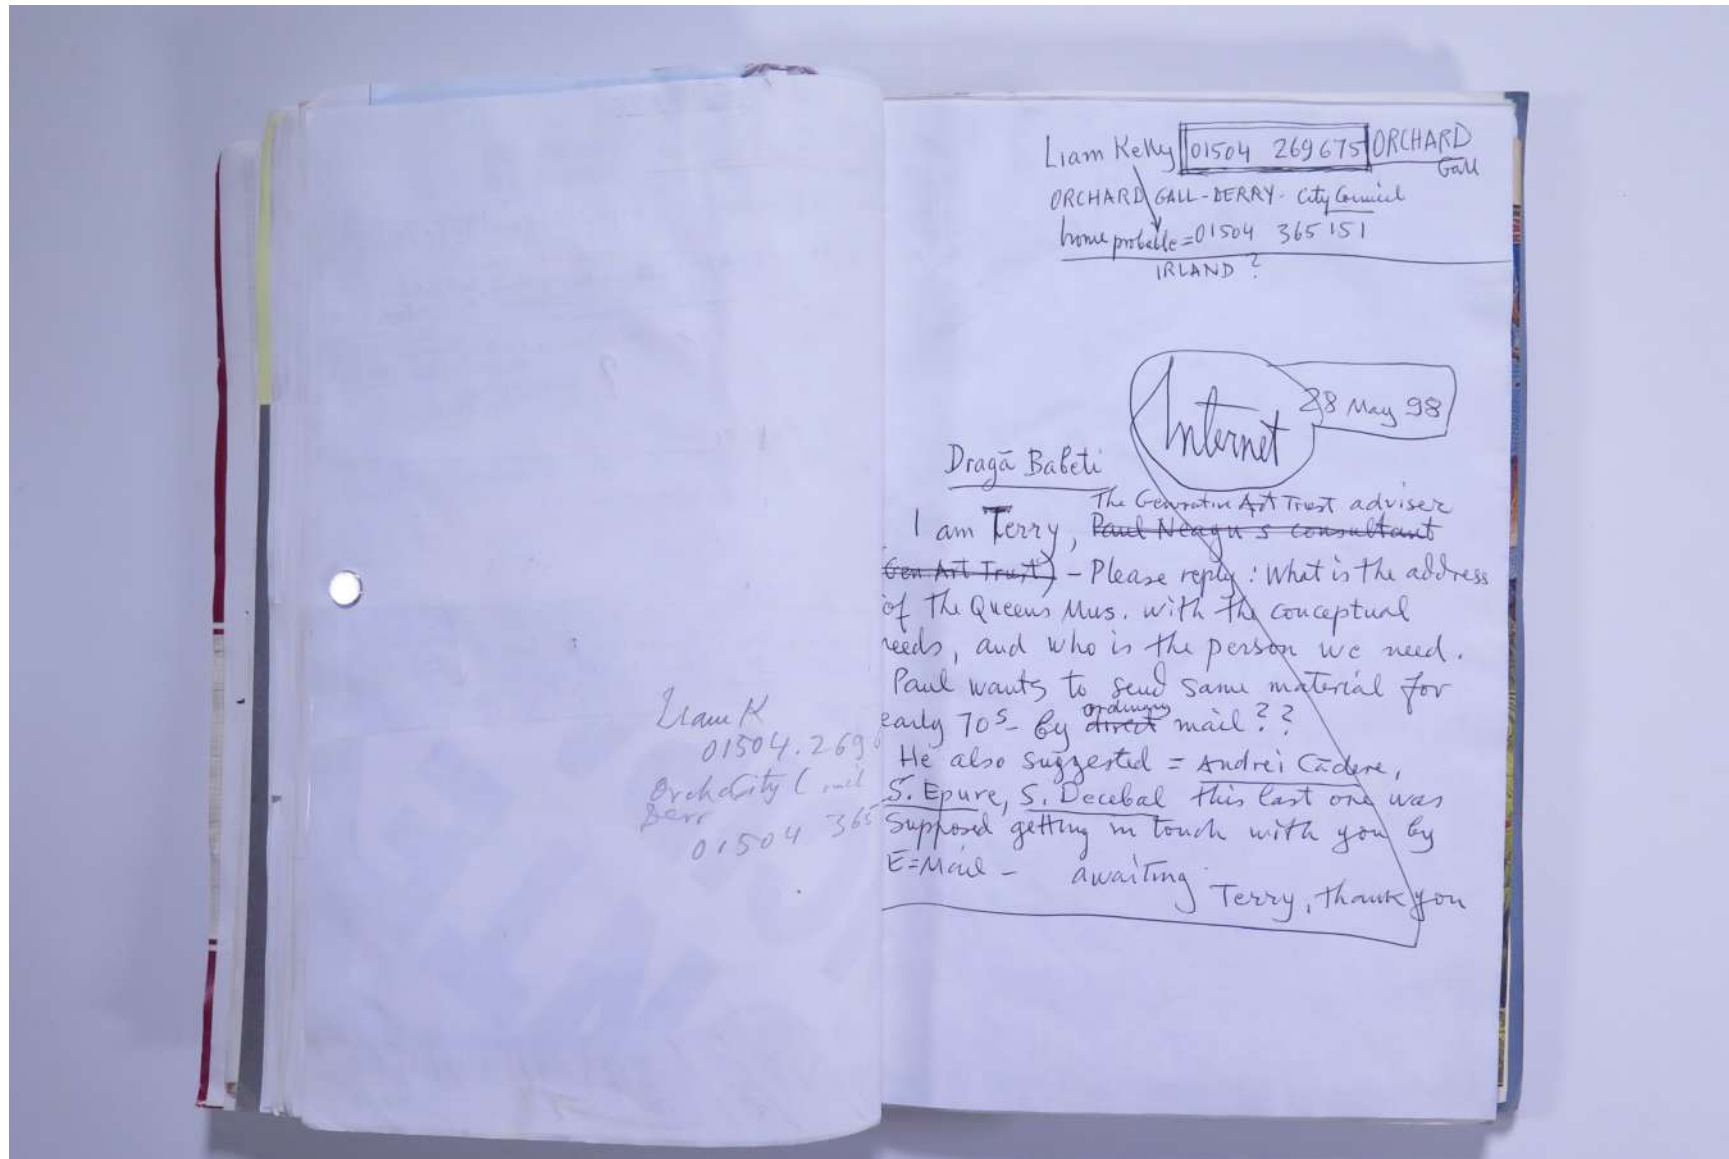 Liam K
01504.269
Orcha City C
Derr
01504 365
Liam Kelly 01504 269675 ORCHARD
Gall
ORCHARD GALL-DERRY- City Council
home probable=01504 365151
IRLAND ?
Internet
28 May 98
Dragă Babeti
The Generative Art Trust adviser
I am Terry, Paul Neagu's consultant
Gen. Art Trust) - Please reply: What is the address
of The Queens Mus. with the conceptual
needs, and who is the person we need.
Paul wants to send same material for
ordinary
early 70s - by direct mail??
He also suggested = Andrei Cădere,
S. Epure, S. Decebal this last one was
Supposed getting in touch with you by
E=Mail - awaiting
Terry, thank you